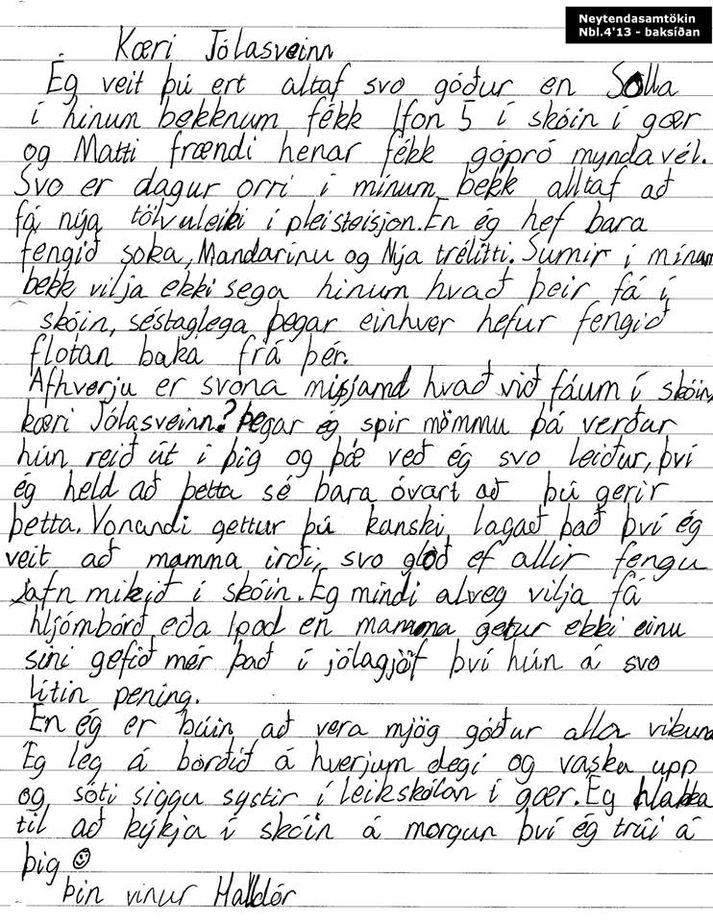 Neytendasamtökin
Nbl.4'13 - baksíðan
Kæri Jólasveinn
Ég veit þú ert altaf svo góður en Solla
í hinum bekknum fékk Ifon 5 í skóin í gær
og Matti frændi henar fékk gópró myndavél.
Svo er dagur orri í mínum bekk alltaf að
fá nýa tölvuleiki í pleisteisjon. En ég hef bara
fengið soka, Mandarínu og Nýa trélitti. Sumir í mínum
bekk vilja ekki sega hinum hvað þeir fá í
skóin, séstaglega þegar einhver hefur fengið
flotan baka frá þér.
Afhverju er svona misjamd hvað við fáum í skóin,
kæri Jólasveinn? Þegar ég spir mömmu þá verður
hún reið út í þig og þá veð ég svo leiður, því
ég held að þetta sé bara óvart að þú gerir
þetta. Vonandi gettur þú kanski lagað það því ég
veit að mamma irði svo glöð ef allir fengu
jafn mikið í skóin. Ég mindi alveg vilja fá
hljómborð eða Ipod en mamma getur ekki einu
sini gefið mér það í jólagjöf því hún á svo
lítin pening.
En ég er búin að vera mjög góður alla vikuna
Ég leg á borðið á hverjum degi og vaska upp
og sóti siggu systir í leikskólan í gær. Eg hlakka
til að kýkja í skóin á morgun því ég trúi á
þig ☺
Þin vinur Halldór